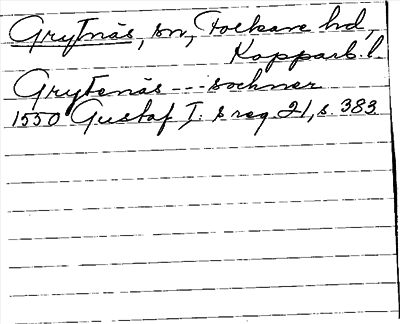 Grytnäs, sn, Folkare hd,
Kopparb. l.
Grytenäs --- sochner
1550 Gustaf I:s reg. 21, s. 383